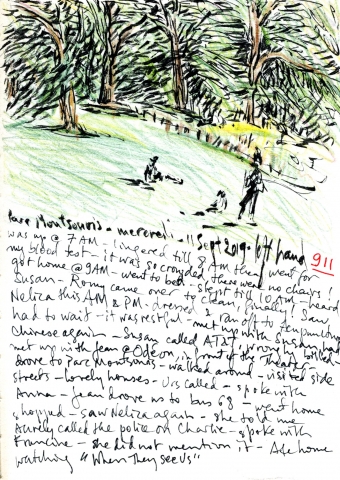 Parc Montsouris - mercredi - 11 Sept 2019 - left hand 911
was up @ 7 AM - lingered till 8 AM then went for
my blood test - it was so crowded there were no chairs!
got home @ 9AM - went to bed - slept till 10 AM - heard
Susan - Romy came over to clean, finally! Saw
Neliza this AM & PM - dressed & ran off to
had to wait - it was restful - met up with Susan, had
Chinese again - Susan called AT&T, wrongly billed
met up with Jean @ Odeon, in front of the theatre -
drove to Parc Montsouris - walked around - visited side
streets - lovely houses - Urs called - spoke with
Anna - Jean drove us to bus 68 - went home
shopped - saw Neliza again - she told me
Aurely called the police on Charlie - spoke with
Francine - she did not mention it - Ate home
watching "When They See Us"